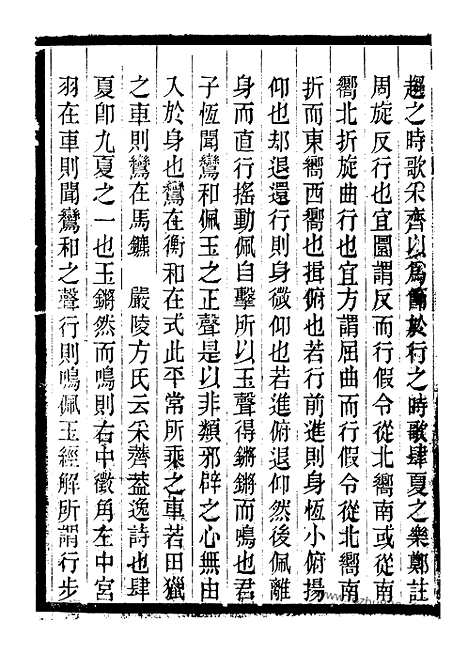 趨之時歌采齊以爲節於行之時歌肆夏之樂鄭註
周旋反行也宜圜謂反而行假令從北嚮南或從南
嚮北折旋曲行也宜方謂屈曲而行假令從北嚮南
折而東嚮西嚮也揖俯也若行前進則身恆小俯揚
仰也却退還行則身微仰也若進俯退仰然後佩離
身而直行搖動佩自擊所以玉聲得鏘鏘而鳴也君
子恆聞鸞和佩玉之正聲是以非類邪辟之心無由
入於身也鸞在衡和在式此平常所乘之車若田獵
之車則鸞在馬鑣　嚴陵方氏云采薺葢逸詩也肆
夏卽九夏之一也玉鏘然而鳴則右中徵角左中宮
羽在車則聞鸞和之聲行則鳴佩玉經解所謂行步